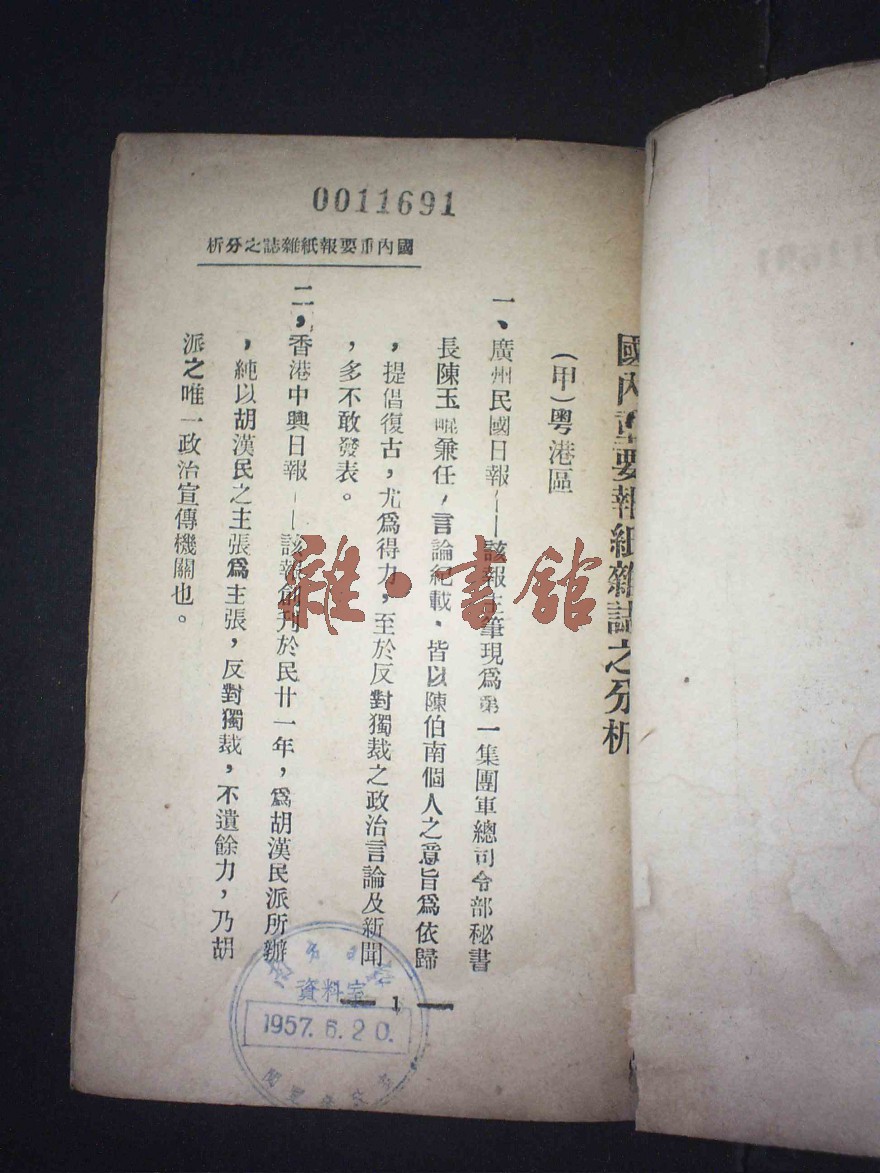 0011691
國內重要報紙雜誌之分析
國內重要報紙雜誌之分析
（甲）粵港區
一、廣州民國日報——該報主筆現為第一集團軍總司令部秘書
長陳玉崐兼任，言論紀載，皆以陳伯南個人之意旨為依歸
，提倡復古，尤為得力，至於反對獨裁之政治言論及新聞
，多不敢發表。
二，香港中興日報——該報創刊於民廿一年，為胡漢民派所辦
，純以胡漢民之主張為主張，反對獨裁，不遺餘力，乃胡
派之唯一政治宣傳機關也。
雜·書館
資料室
1957.6.20.
1